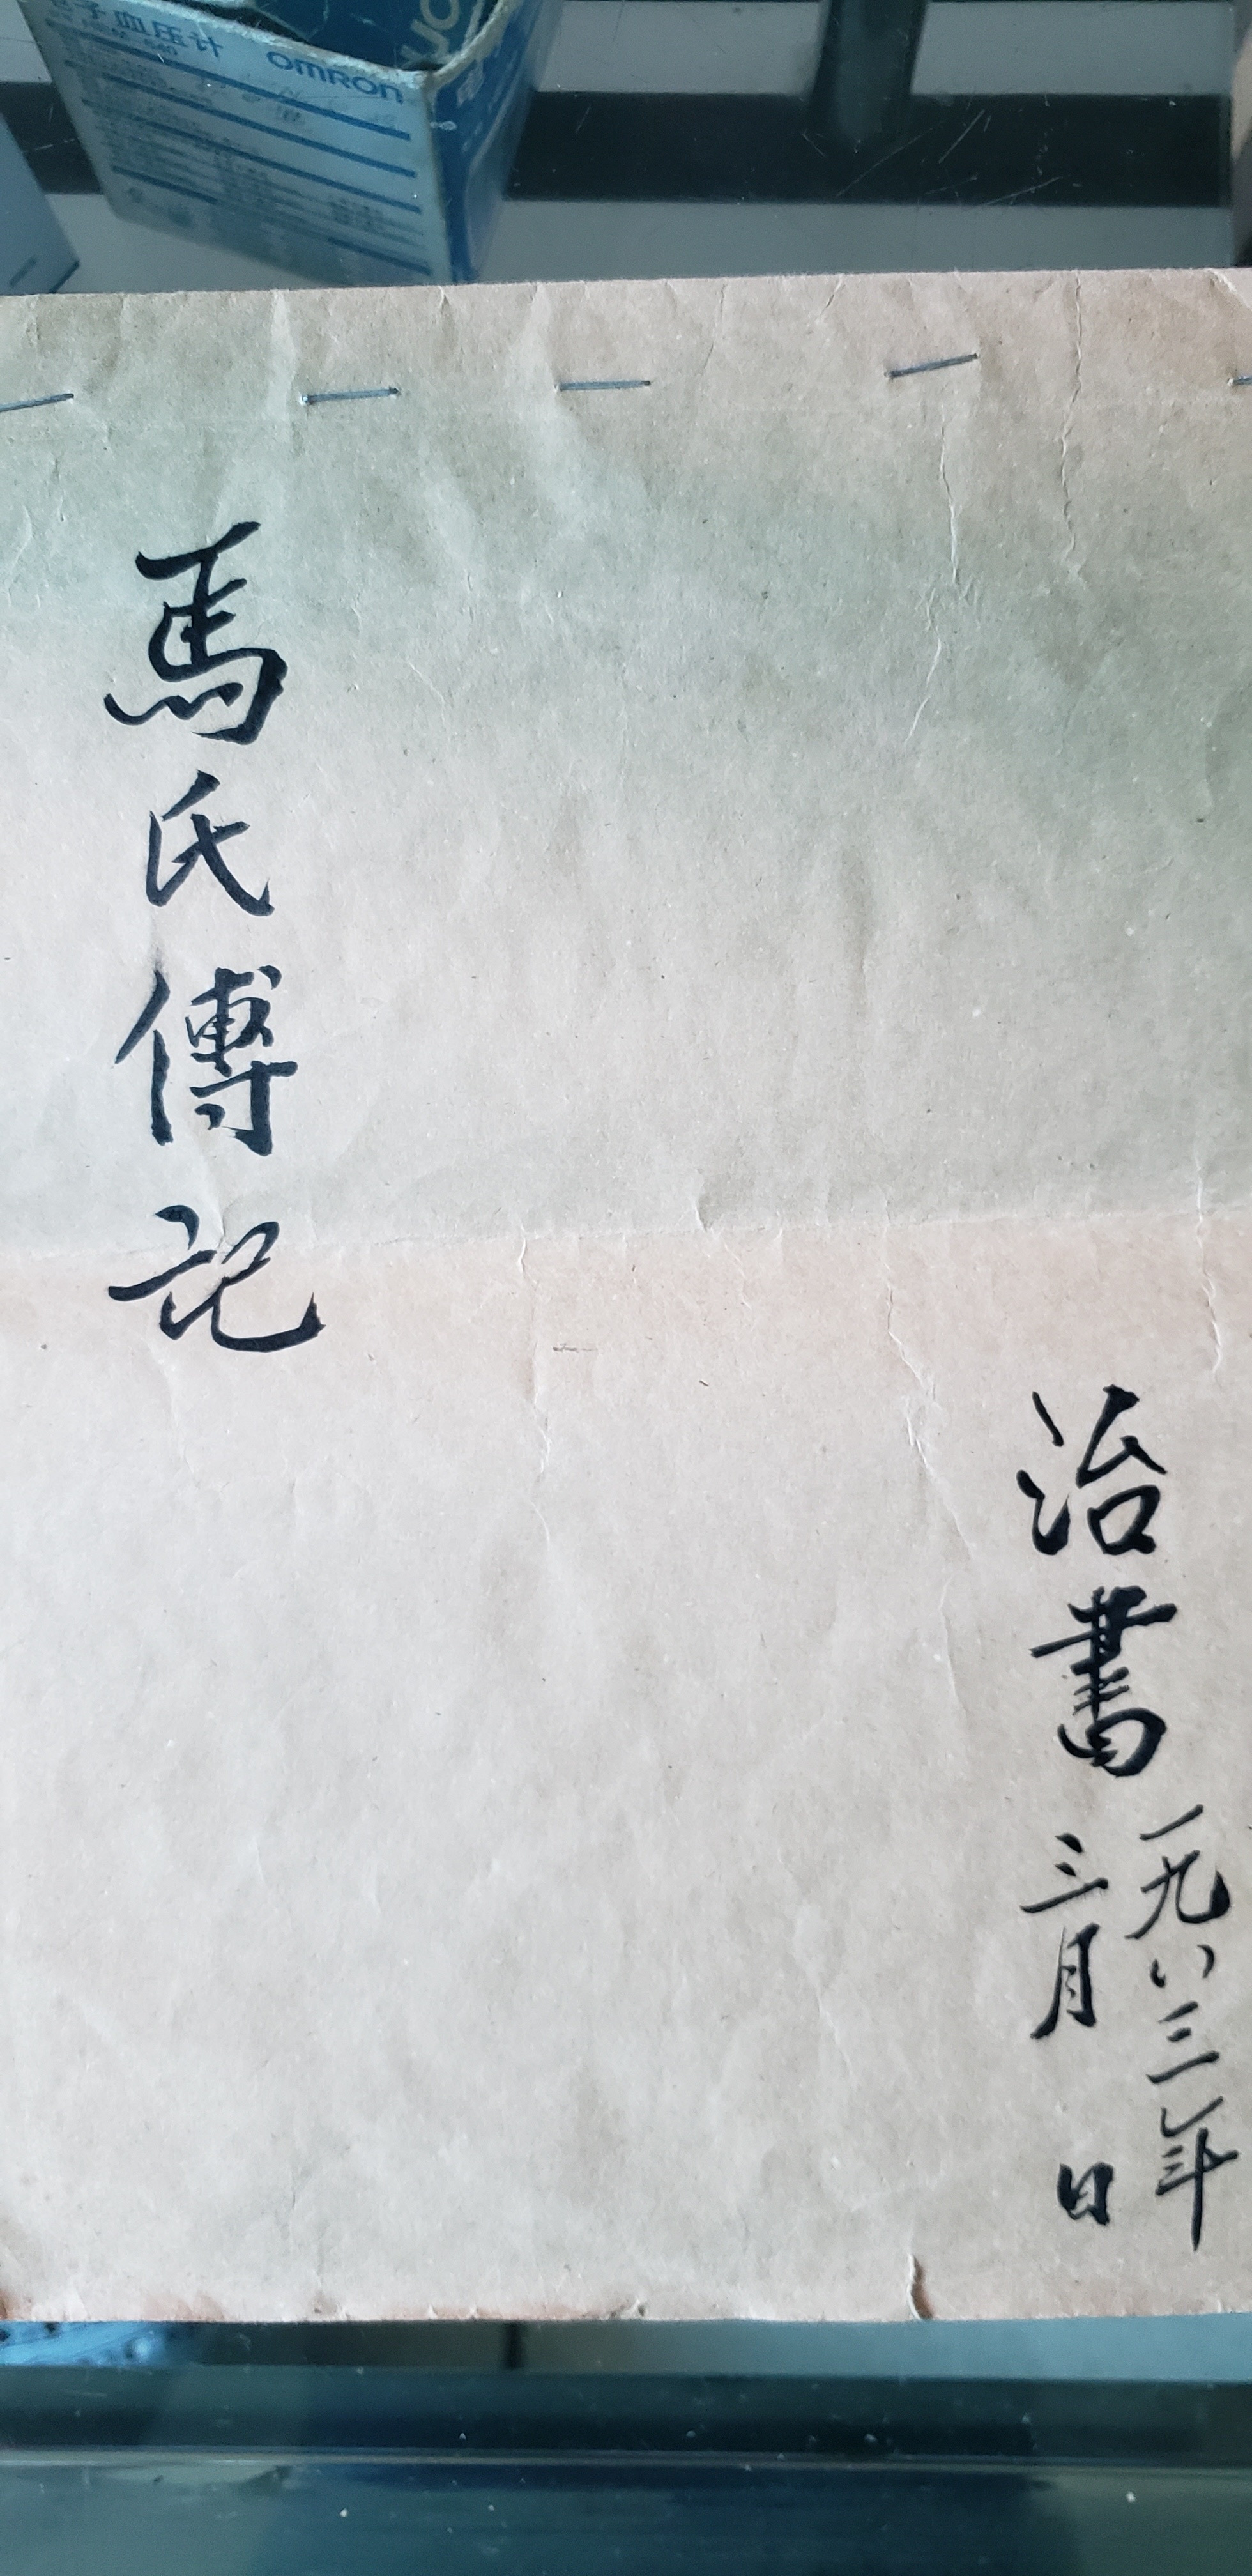 子血压计 OMRON
馬氏傳記
治書
一九八三年
三月 日